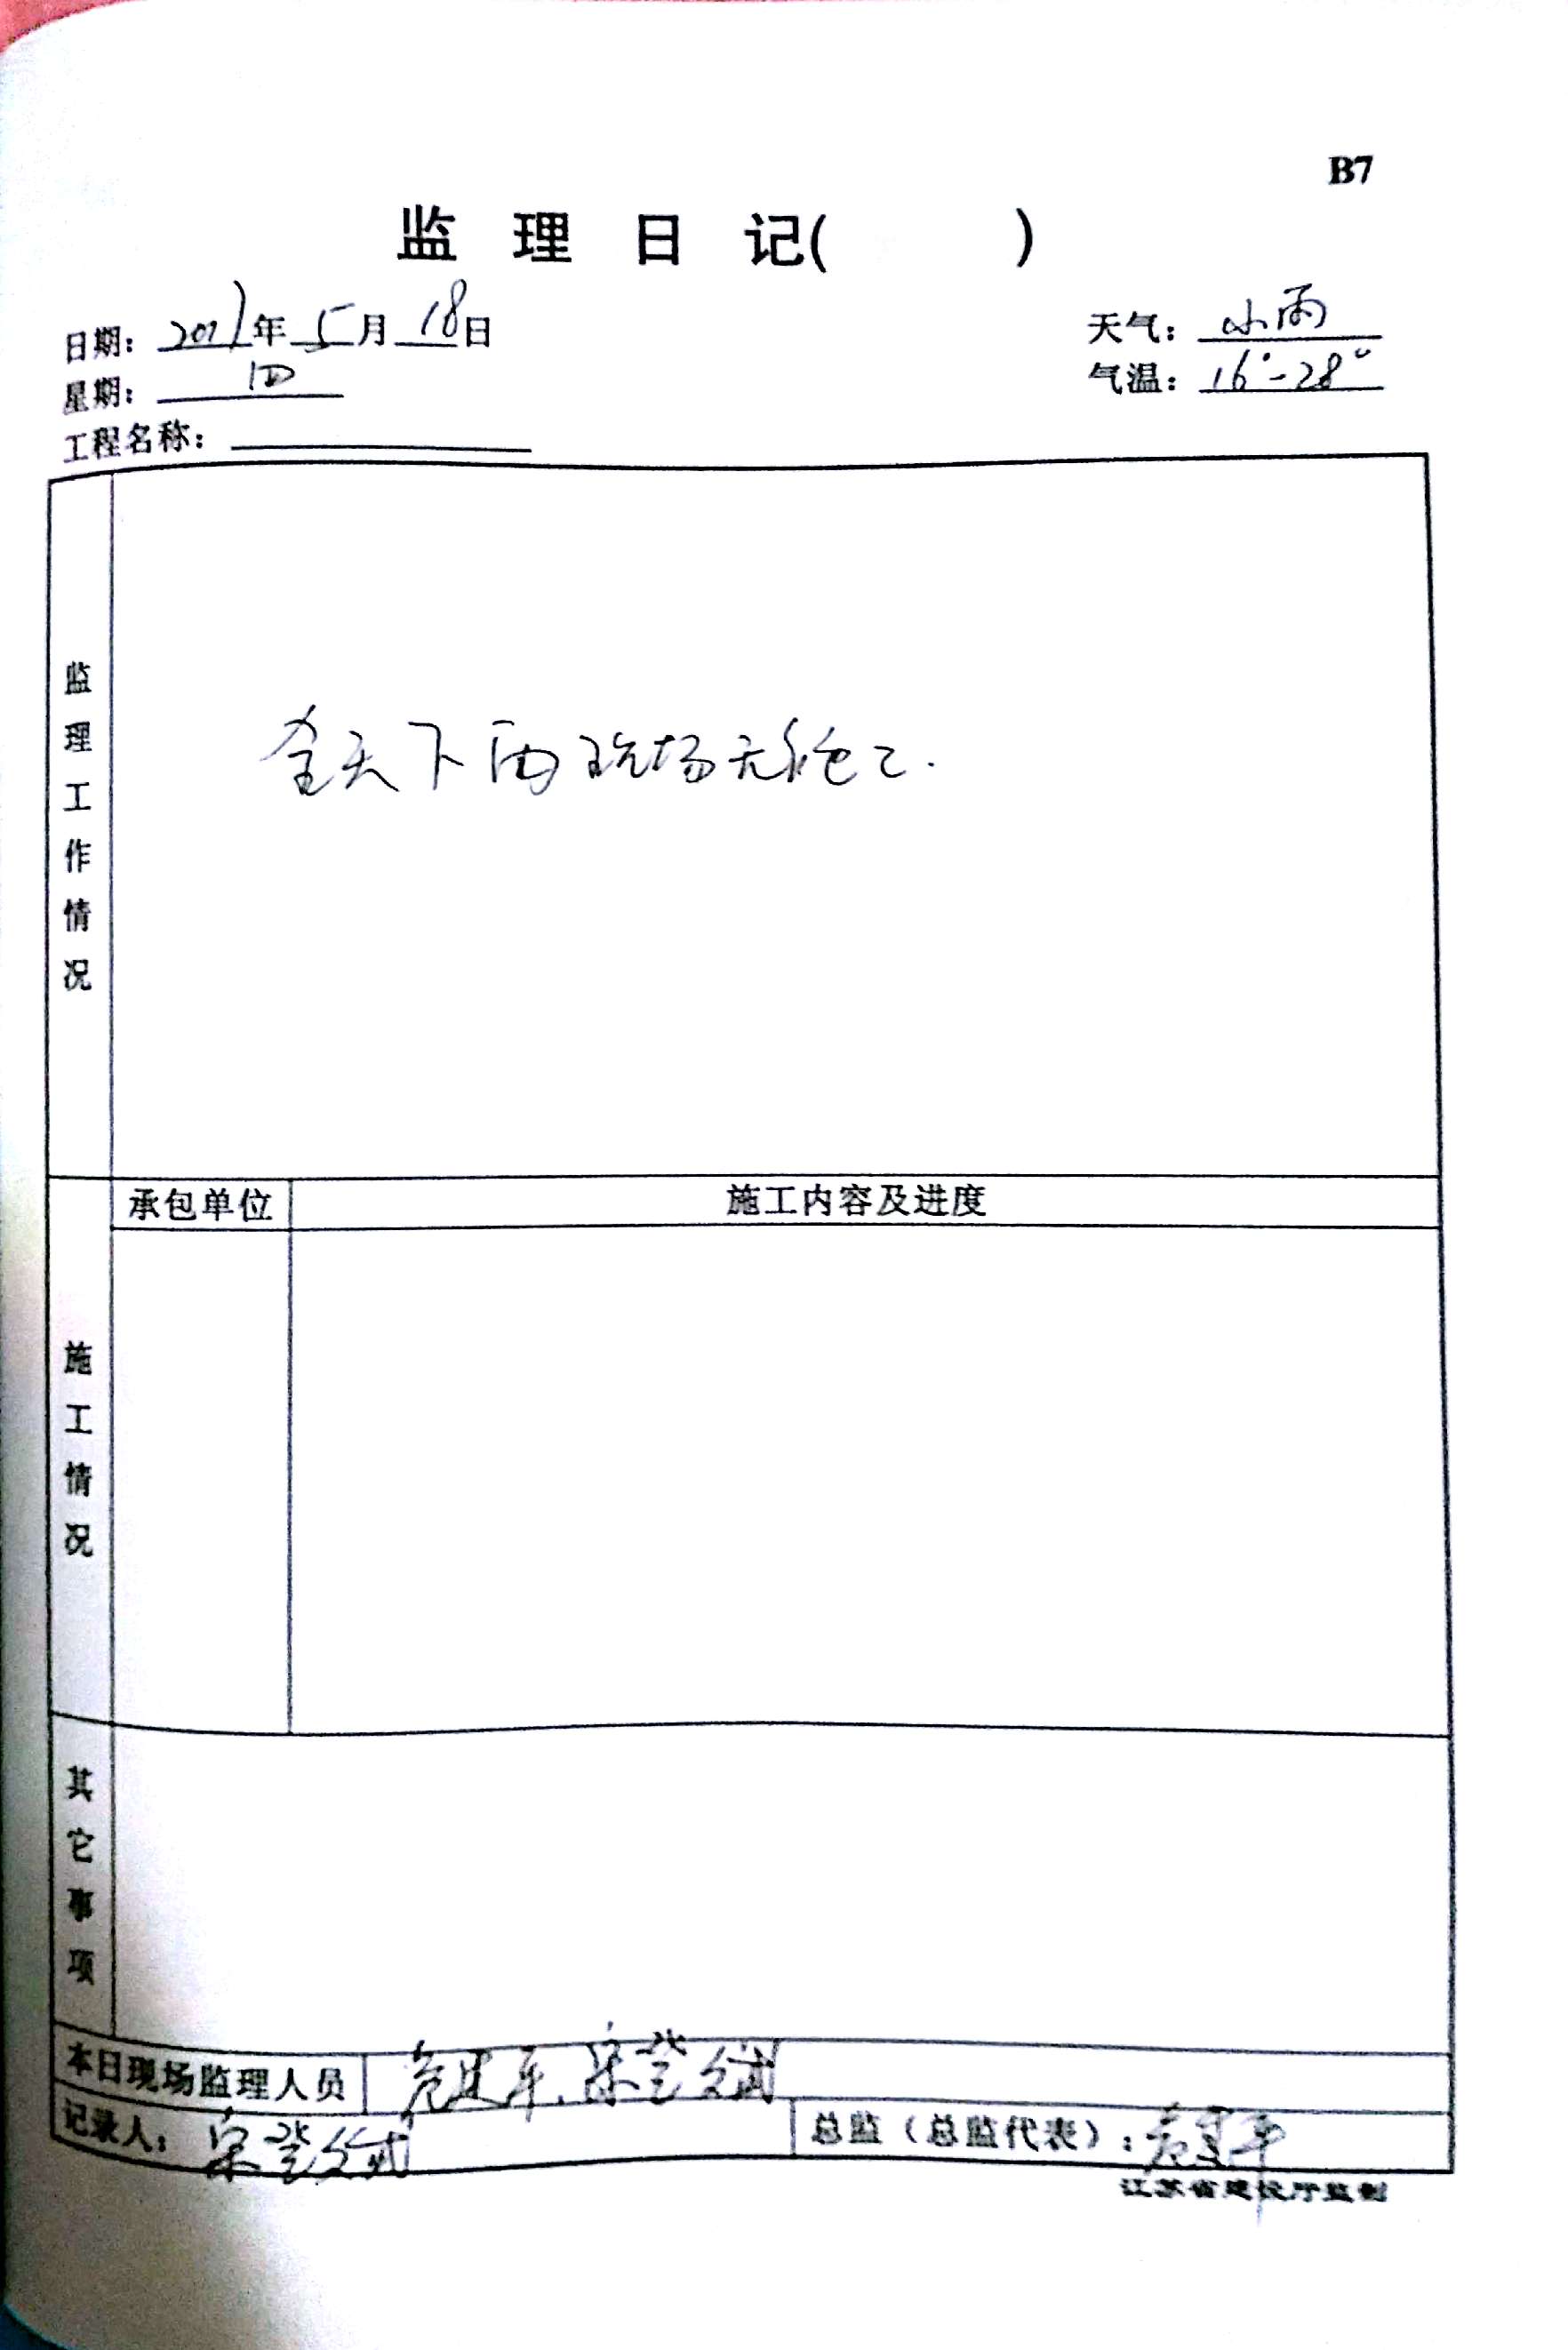 B7
监理日记( )
日期: 年 5 月 18 日 天气: 小雨
星期: 四 气温: 16°-28°
工程名称:
监理工作情况
全天下雨现场无施工.
承包单位 施工内容及进度
施工情况
其它事项
本日现场监理人员
记录人: 总监(总监代表):
江苏省建设厅监制